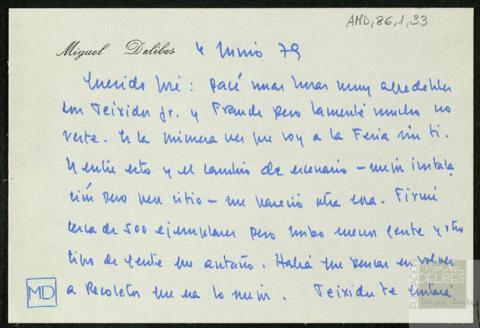 AMD,86,1,33
Miguel Delibes 4 Junio 79
Querido José: pasé unas horas muy agradables
con Teixidor Jr. y Franch pero lamenté mucho no
verte. Es la primera vez que voy a la Feria sin ti.
Y entre esto y el cambio de escenario – mejor instala
ción pero peor sitio – me pareció otra cosa. Firmé
cerca de 500 ejemplares pero hubo menos gente y otro
tipo de gente que antaño. Habrá que pensar en volver
a Recoletos que era lo mejor. Teixidor te contará
MD
MIGUEL
DELIBES